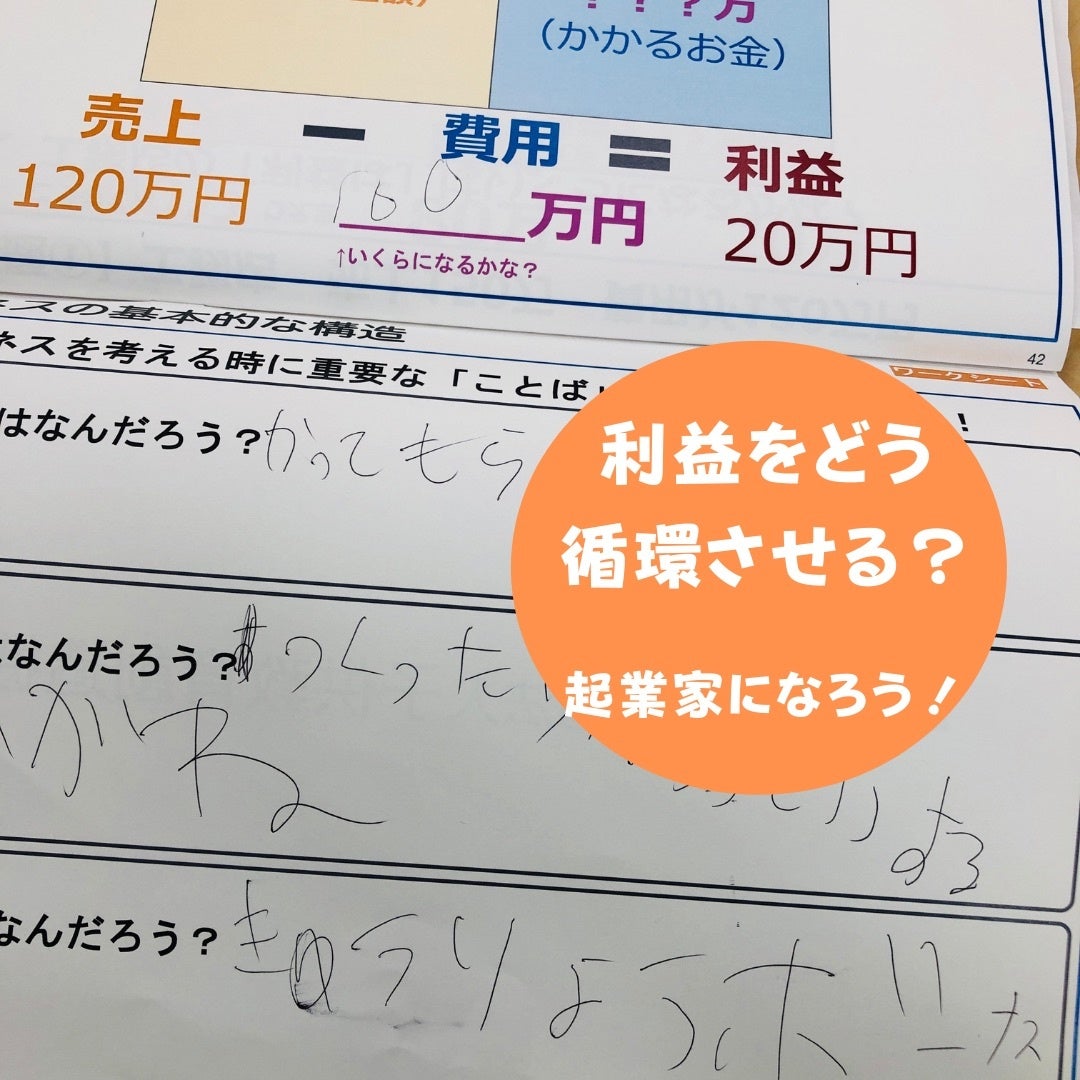 ？？？万
（かかるお金）
売上 ー 費用 ＝ 利益
120万円 100万円 20万円
↑いくらになるかな？
スの基本的な構造
42
ネスを考える時に重要な「ことば
！
ワークシート
はなんだろう？かってもら
利益をどう
循環させる？
起業家になろう！
なんだろう？つくった
がね
する
なんだろう？きゅうりょうボーナス